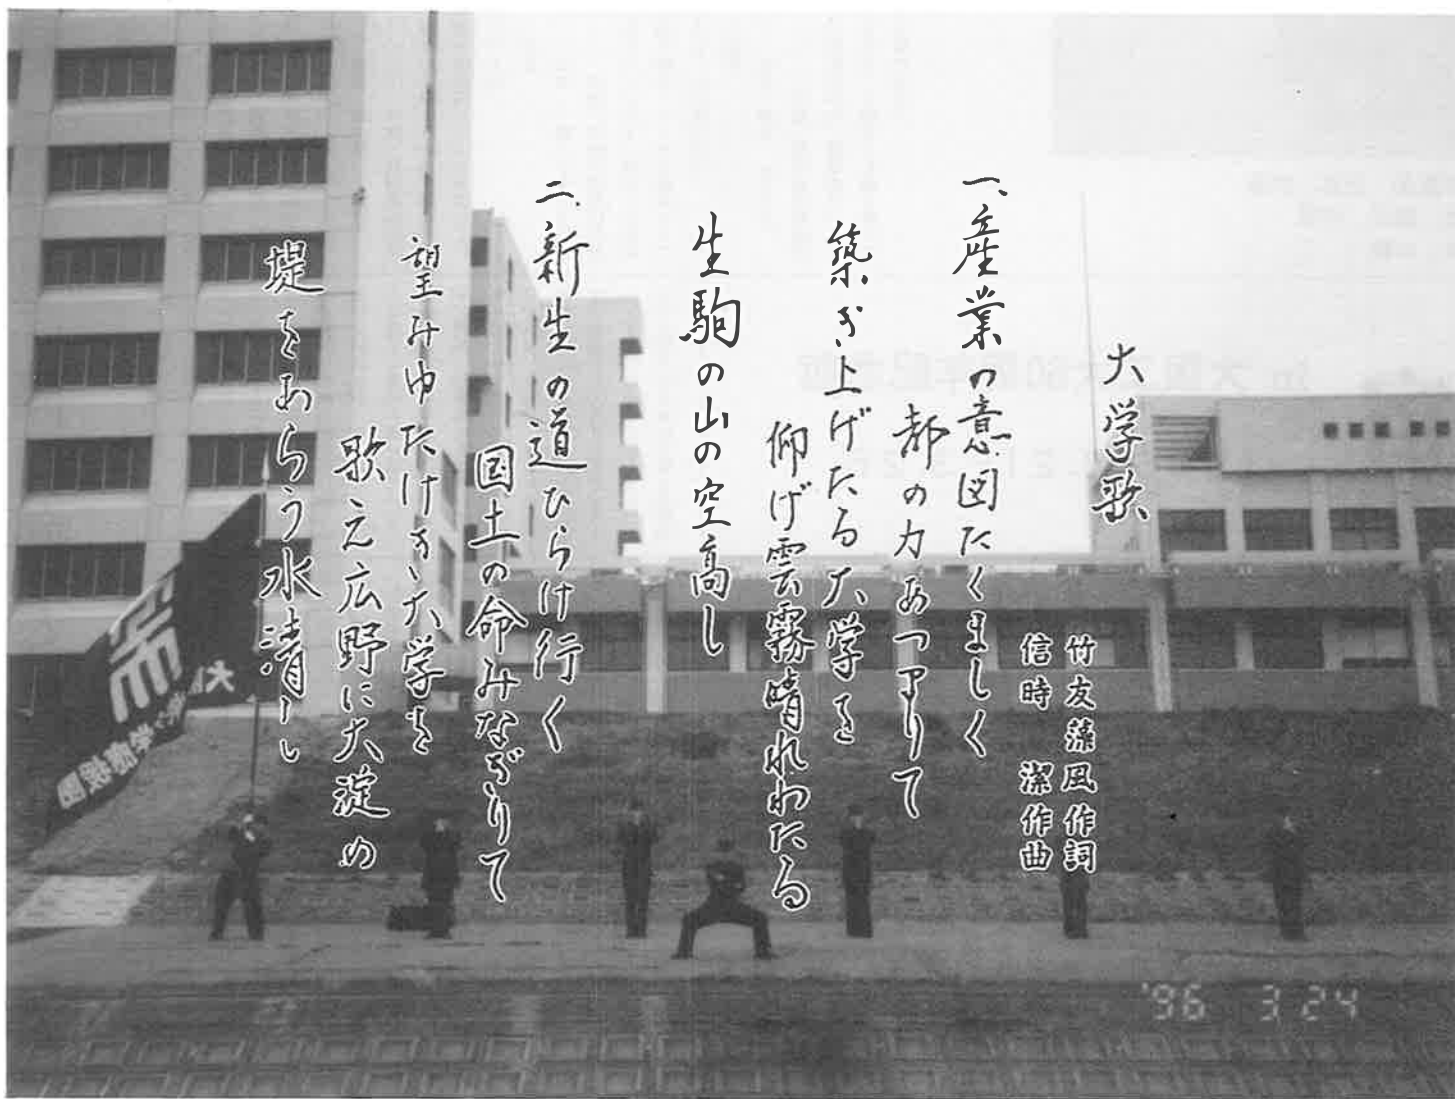 大学歌
竹友藻風作詞
信時 潔作曲
一、産業の意図たくましく
都の力あつまりて
築き上げたる大学を
仰げ雲霧晴れわたる
生駒の山の空高し
二、新生の道ひらけ行く
国土の命みなぎりて
望みゆたけき大学を
歌え広野に大淀の
堤をあらう水清し
'96 3 24